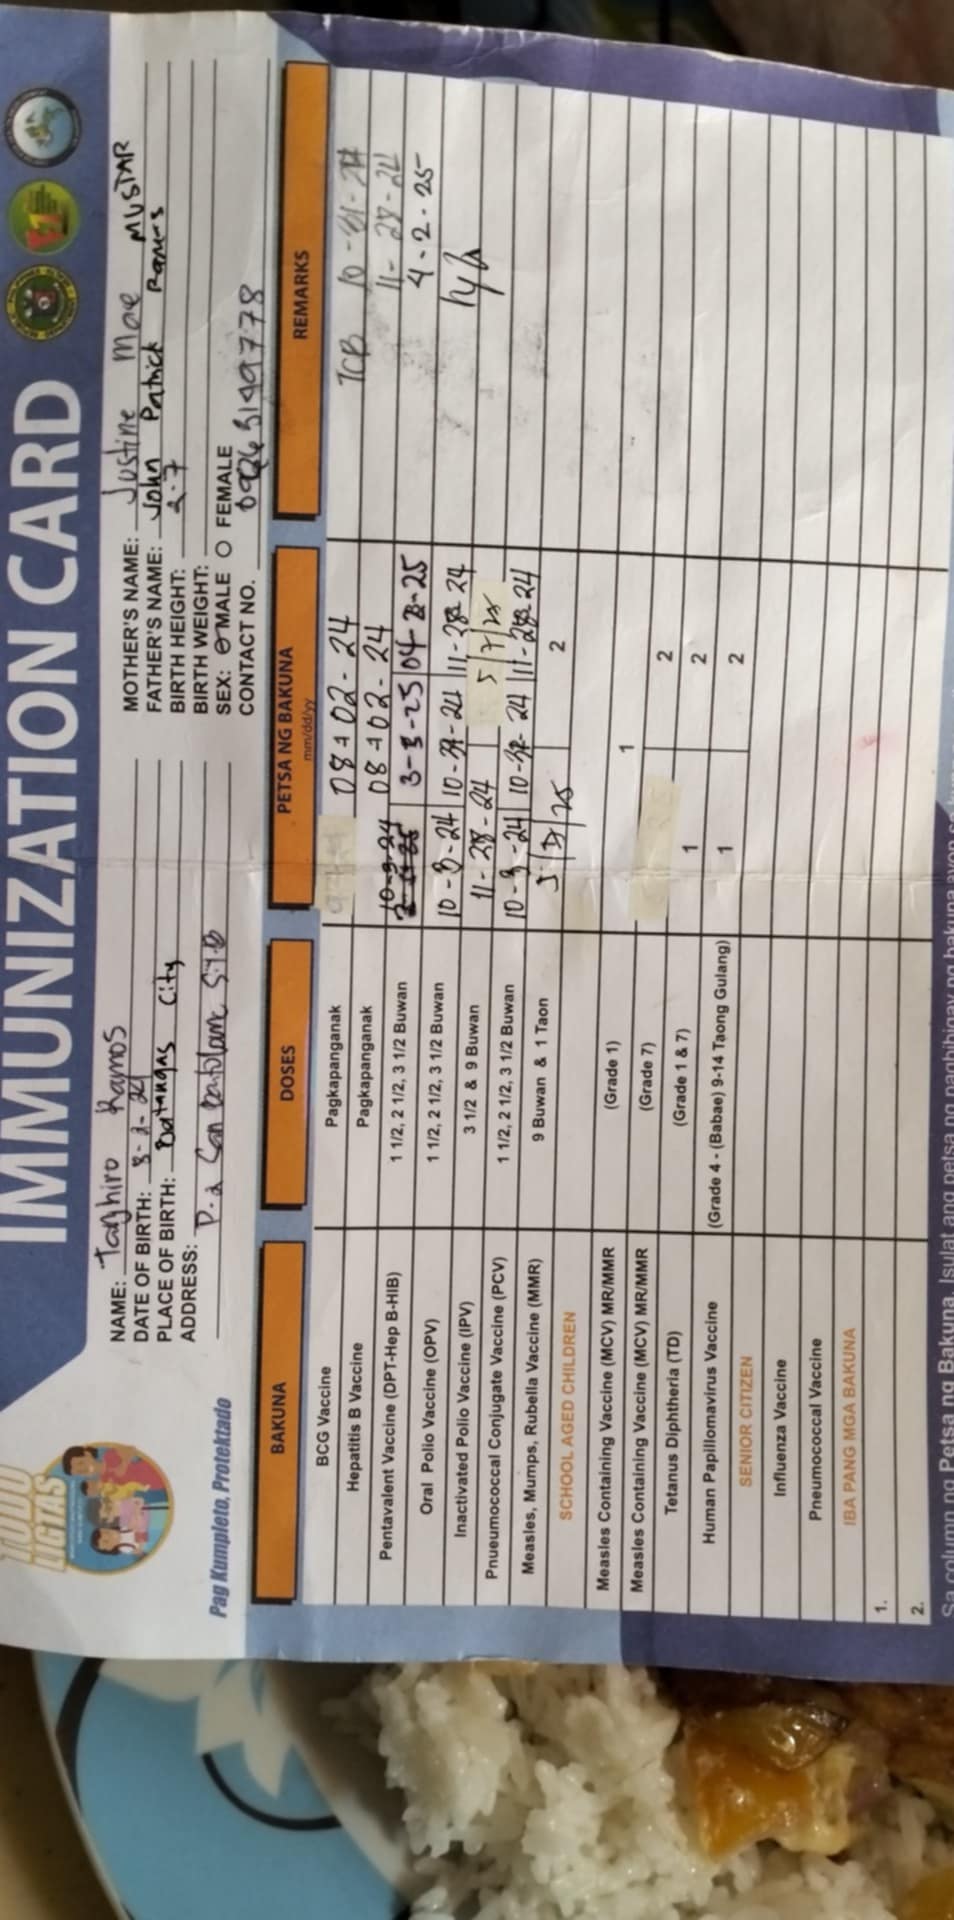 IMMUNIZATION CARD
TODO
LIGTAS
Pag Kumpleto, Protektado
NAME: Taghiro Ramos
DATE OF BIRTH: 8-2-24
PLACE OF BIRTH: Batangas City
ADDRESS: P.2 San
MOTHER'S NAME: Justine Mae MUSTAR
FATHER'S NAME: John Patrick Ramos
BIRTH HEIGHT: 2.7
BIRTH WEIGHT:
SEX: MALE O FEMALE
CONTACT NO.
BAKUNA DOSES PETSA NG BAKUNA mm/dd/yy REMARKS
BCG Vaccine Pagkapanganak 08-02-24 TCB 10-31-24
Hepatitis B Vaccine Pagkapanganak 08-02-24 11-28-24
Pentavalent Vaccine (DPT-Hep B-HIB) 1 1/2, 2 1/2, 3 1/2 Buwan 10-3-24 3-3-25 04-2-25 4-2-25
Oral Polio Vaccine (OPV) 1 1/2, 2 1/2, 3 1/2 Buwan 10-3-24 10-31-24 11-28-24
Inactivated Polio Vaccine (IPV) 3 1/2 & 9 Buwan 11-28-24
Pnueumococcal Conjugate Vaccine (PCV) 1 1/2, 2 1/2, 3 1/2 Buwan 10-3-24 10-31-24 11-28-24
Measles, Mumps, Rubella Vaccine (MMR) 9 Buwan & 1 Taon 2
SCHOOL AGED CHILDREN
Measles Containing Vaccine (MCV) MR/MMR (Grade 1) 1
Measles Containing Vaccine (MCV) MR/MMR (Grade 7) 2
Tetanus Diphtheria (TD) (Grade 1 & 7) 1 2
Human Papillomavirus Vaccine (Grade 4 - (Babae) 9-14 Taong Gulang) 1 2
SENIOR CITIZEN
Influenza Vaccine
Pneumococcal Vaccine
IBA PANG MGA BAKUNA
1.
2.
Sa column ng Petsa ng Bakuna, Isulat ang petsa ng pagbibigay ng bakuna ayon sa